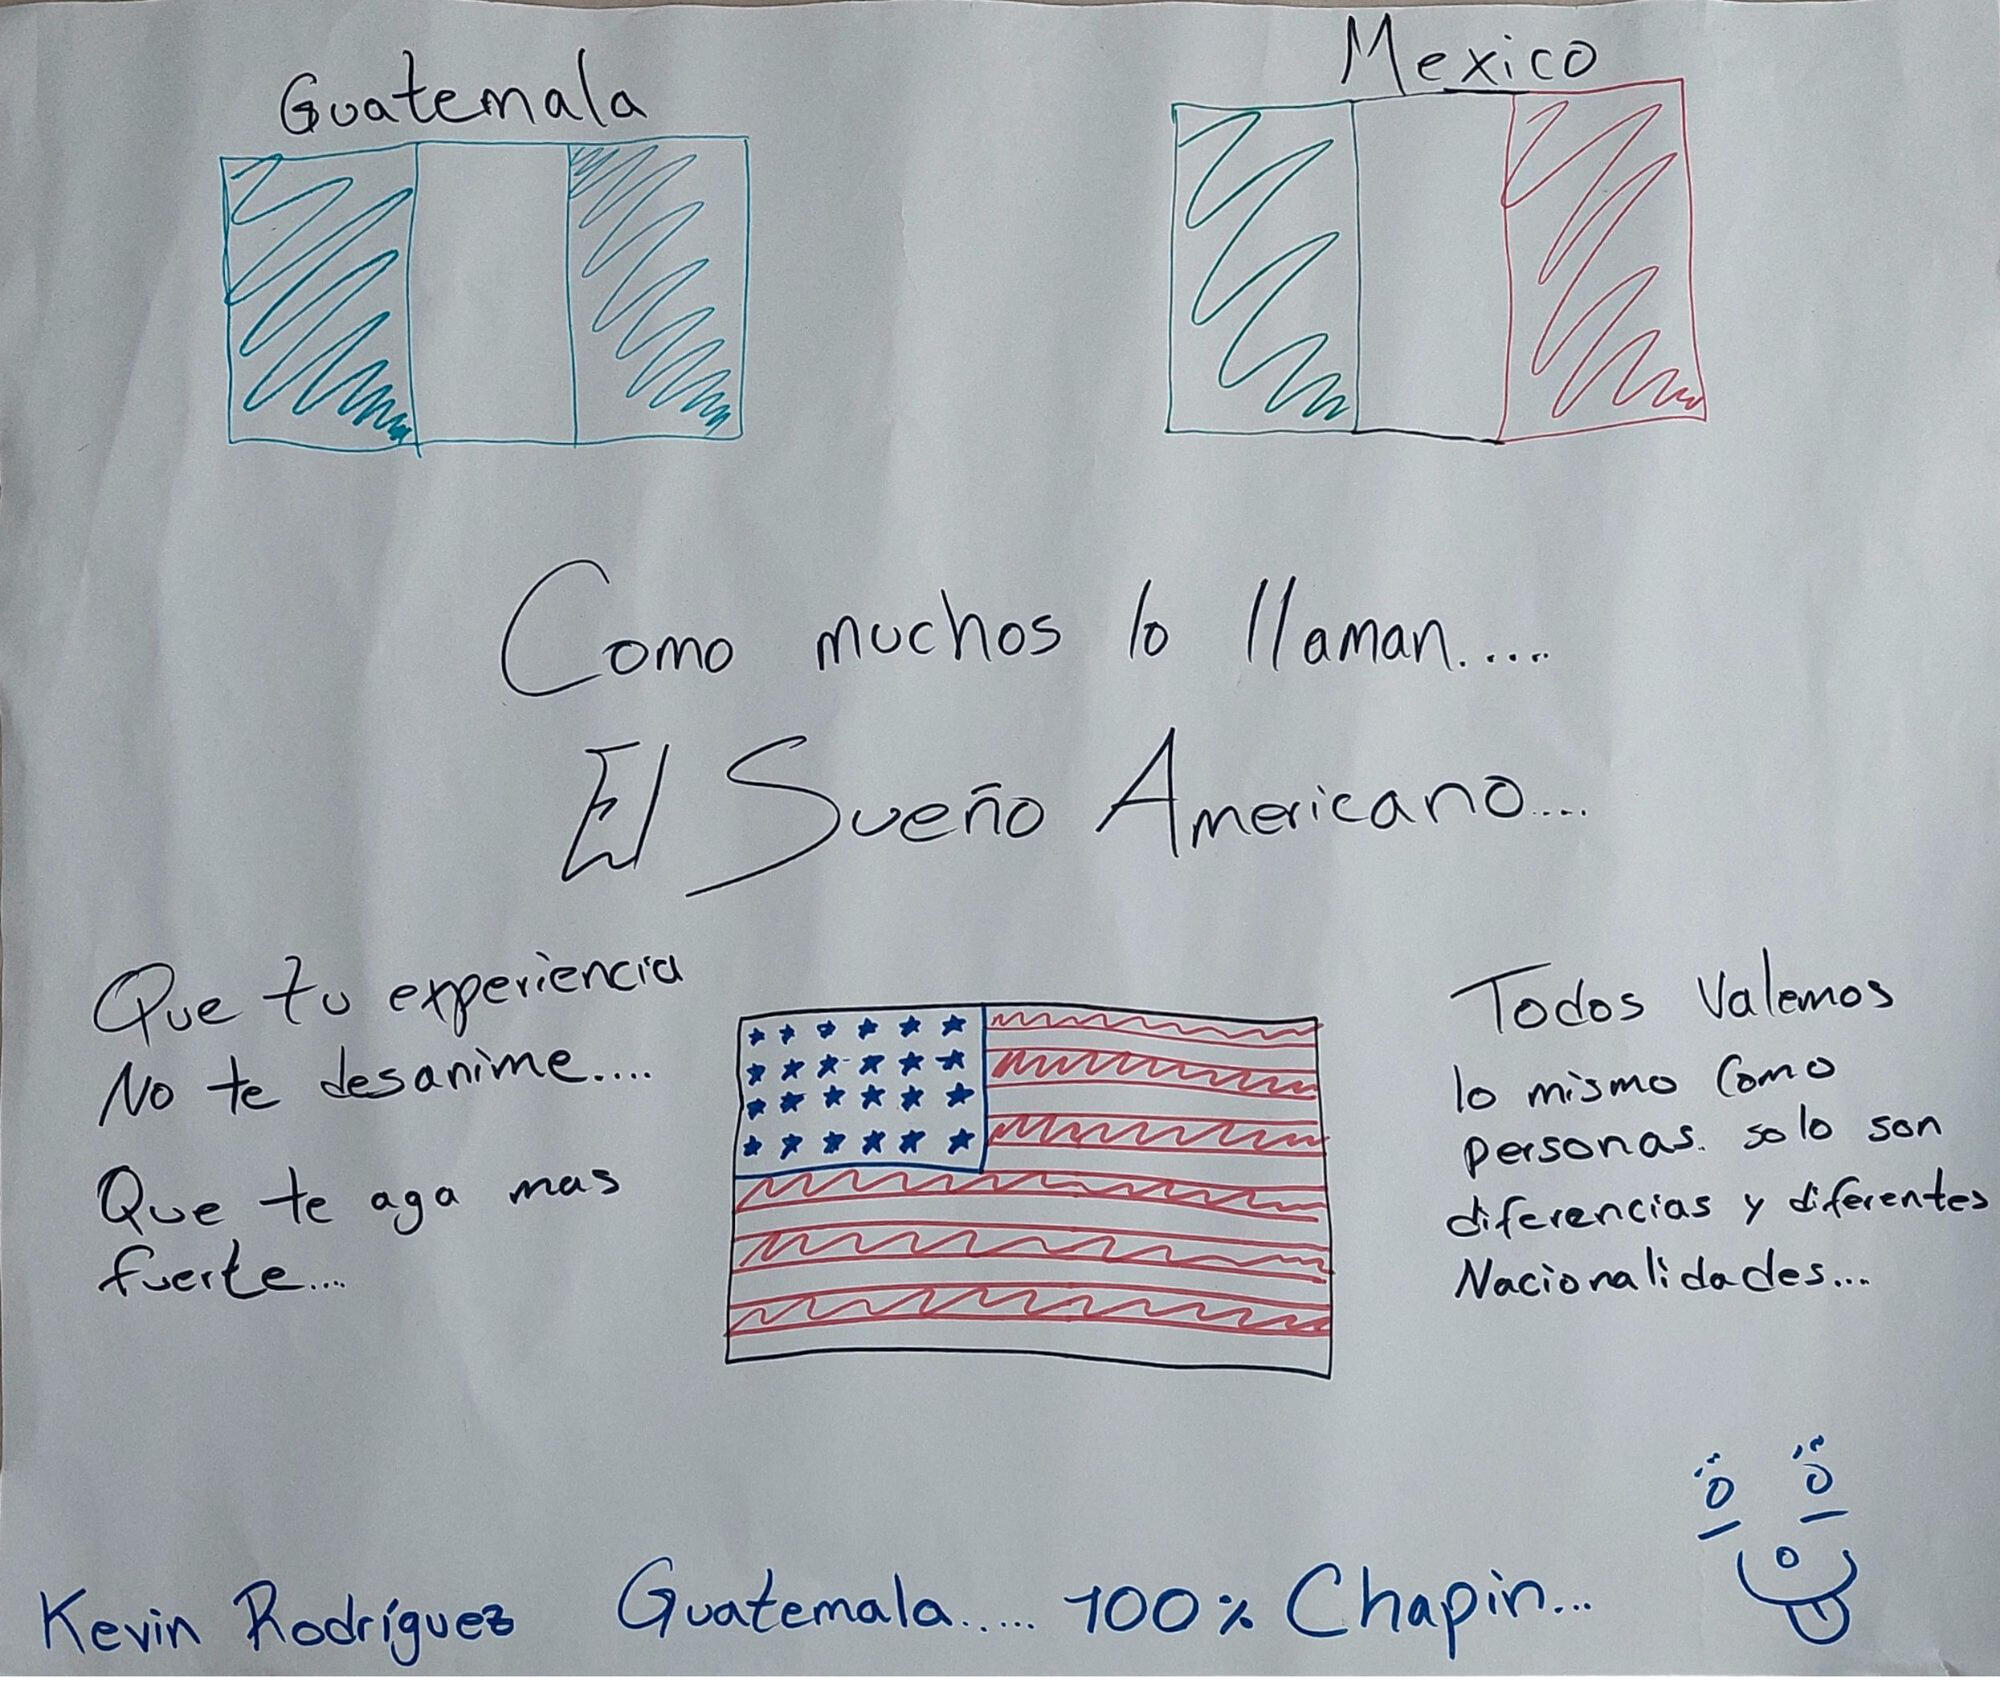 Guatemala
Mexico
Como muchos lo llaman.....
El Sueño Americano....
Que tu experiencia
No te desanime....
Que te aga mas
fuerte....
Todos Valemos
lo mismo Como
personas. solo son
diferencias y diferentes
Nacionalidades...
Kevin Rodríguez Guatemala..... 100% Chapin...